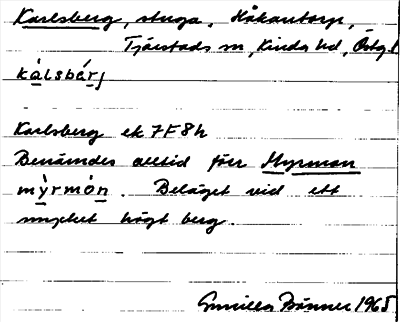 Karlsberg, stuga, Håkantorp,
Tjärstads sn, Kinda hd, Östg.
kàlsbárj
Karlsberg ek 7F8h
Benämdes alltid förr Myrmon
mỳrmón. Beläget vid ett
mycket högt berg.
Gunilla Bränner 1965